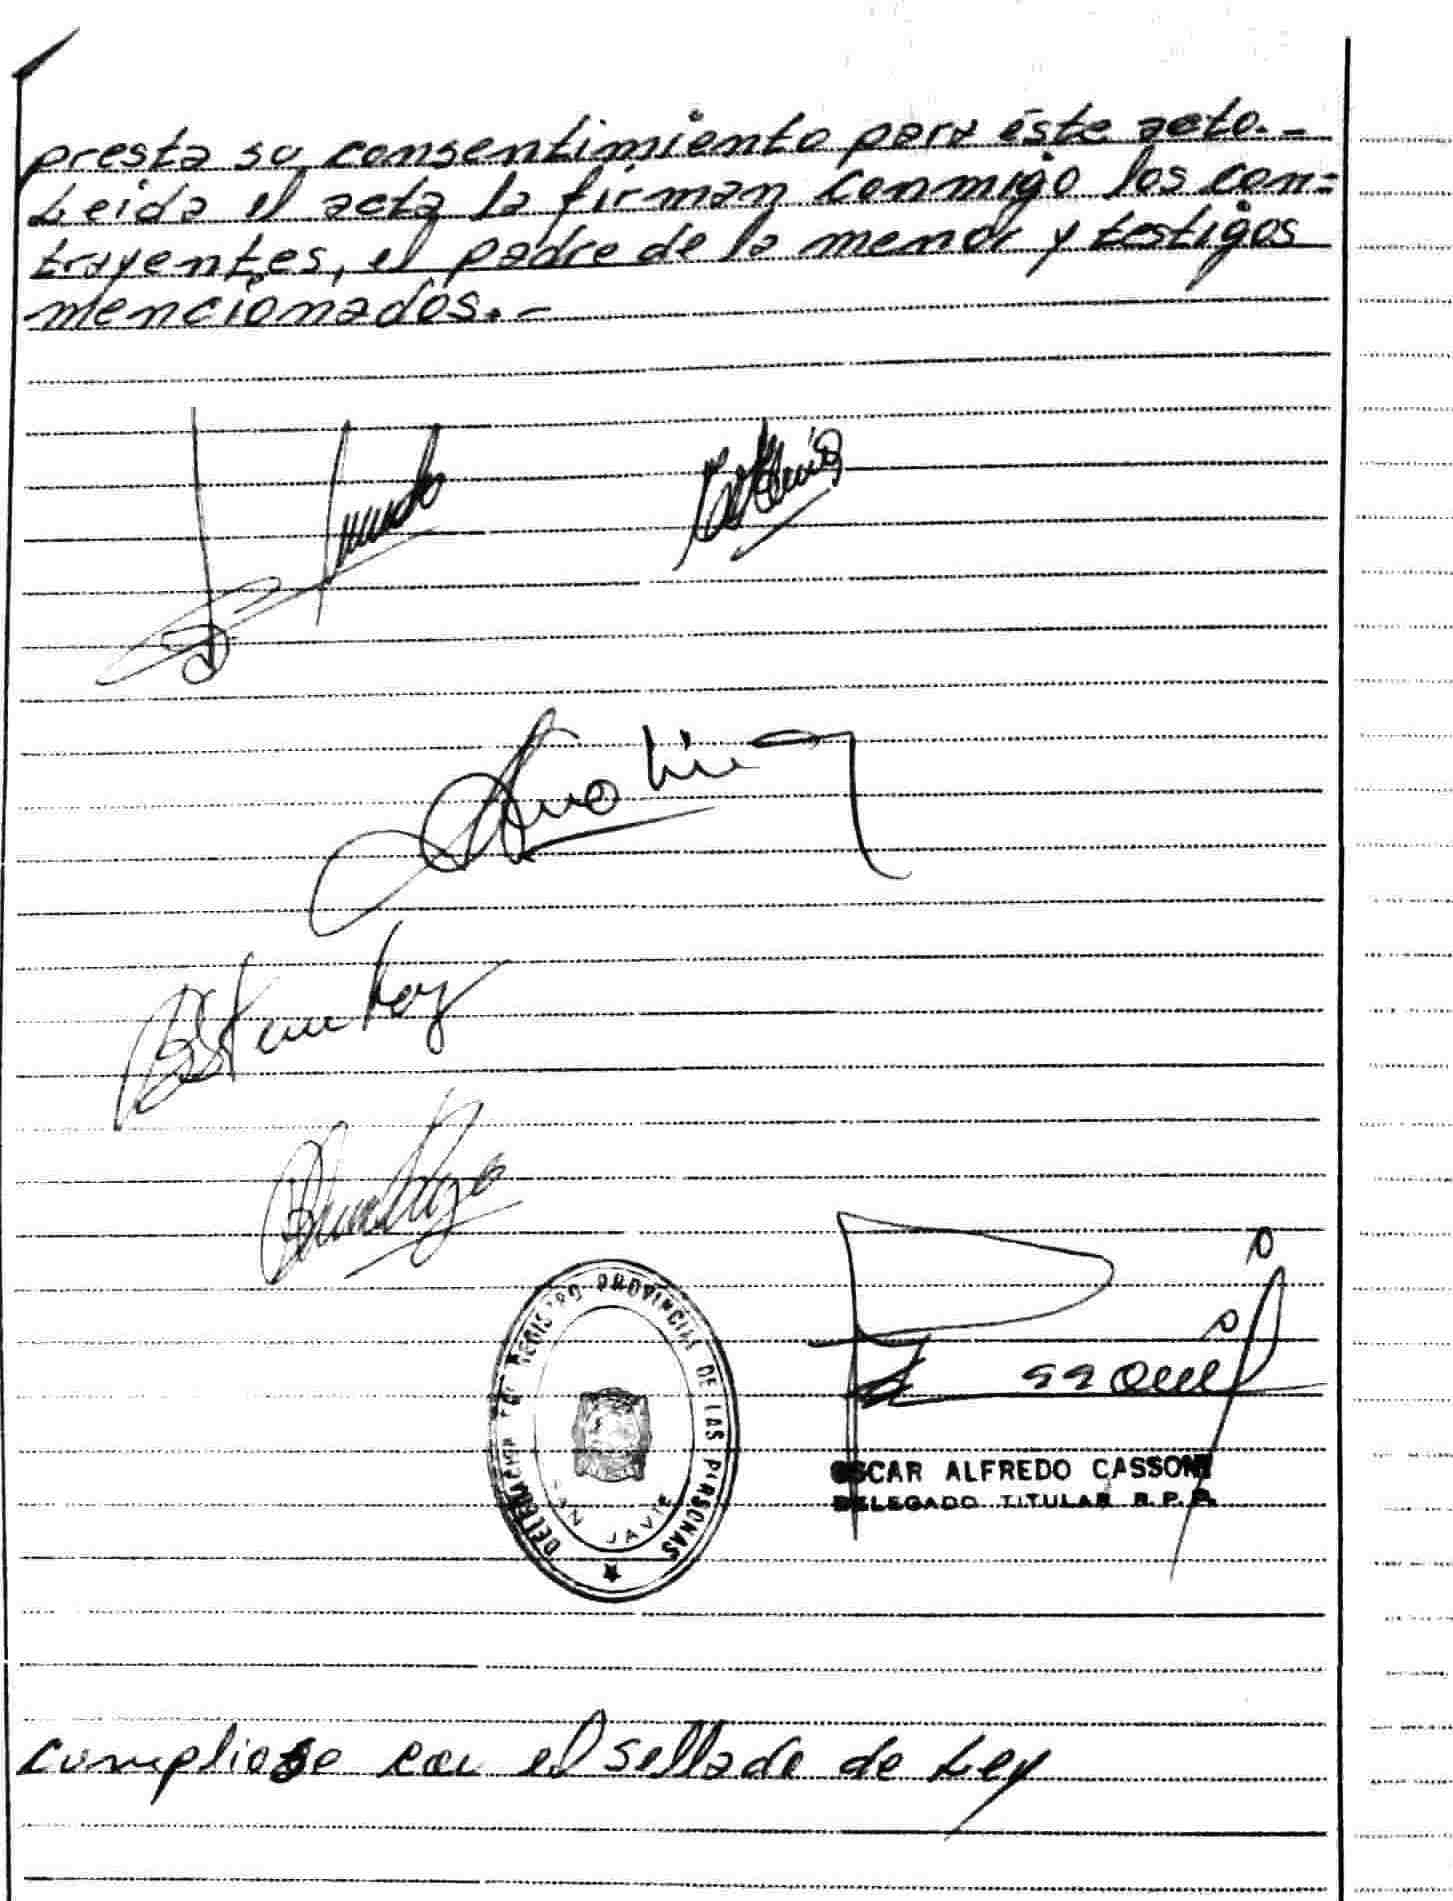 presta su consentimiento para éste acto.-
Leida el acta la firman conmigo los con=
trayentes, el padre de la menor y testigos
mencionados.-
DELEGACION DEL REGISTRO PROVINCIAL DE LAS PERSONAS
SAN JAVIE
OSCAR ALFREDO CASSONI
DELEGADO TITULAR R.P.P.
cumpliose con el sellado de Ley